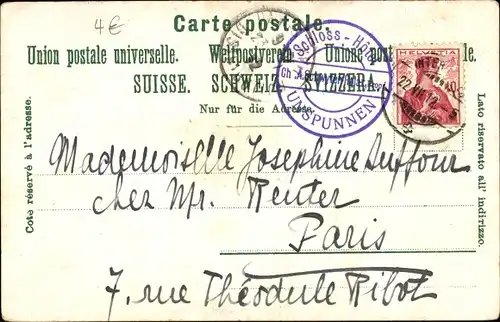 4 €
Carte postale.
Union postale universelle. Weltpostverein. Unione post le.
SUISSE. SCHWEIZ. SVIZZERA.
Nur für die Adresse.
Schloss - Hôtel
UNSPUNNEN
HELVETIA
10
Côté réservé à l'adresse.
Lato riservato all' indirizzo.
Mademoiselle Josephine Duffour
chez Mr. Reuter
Paris
7, rue Théodule Ribot